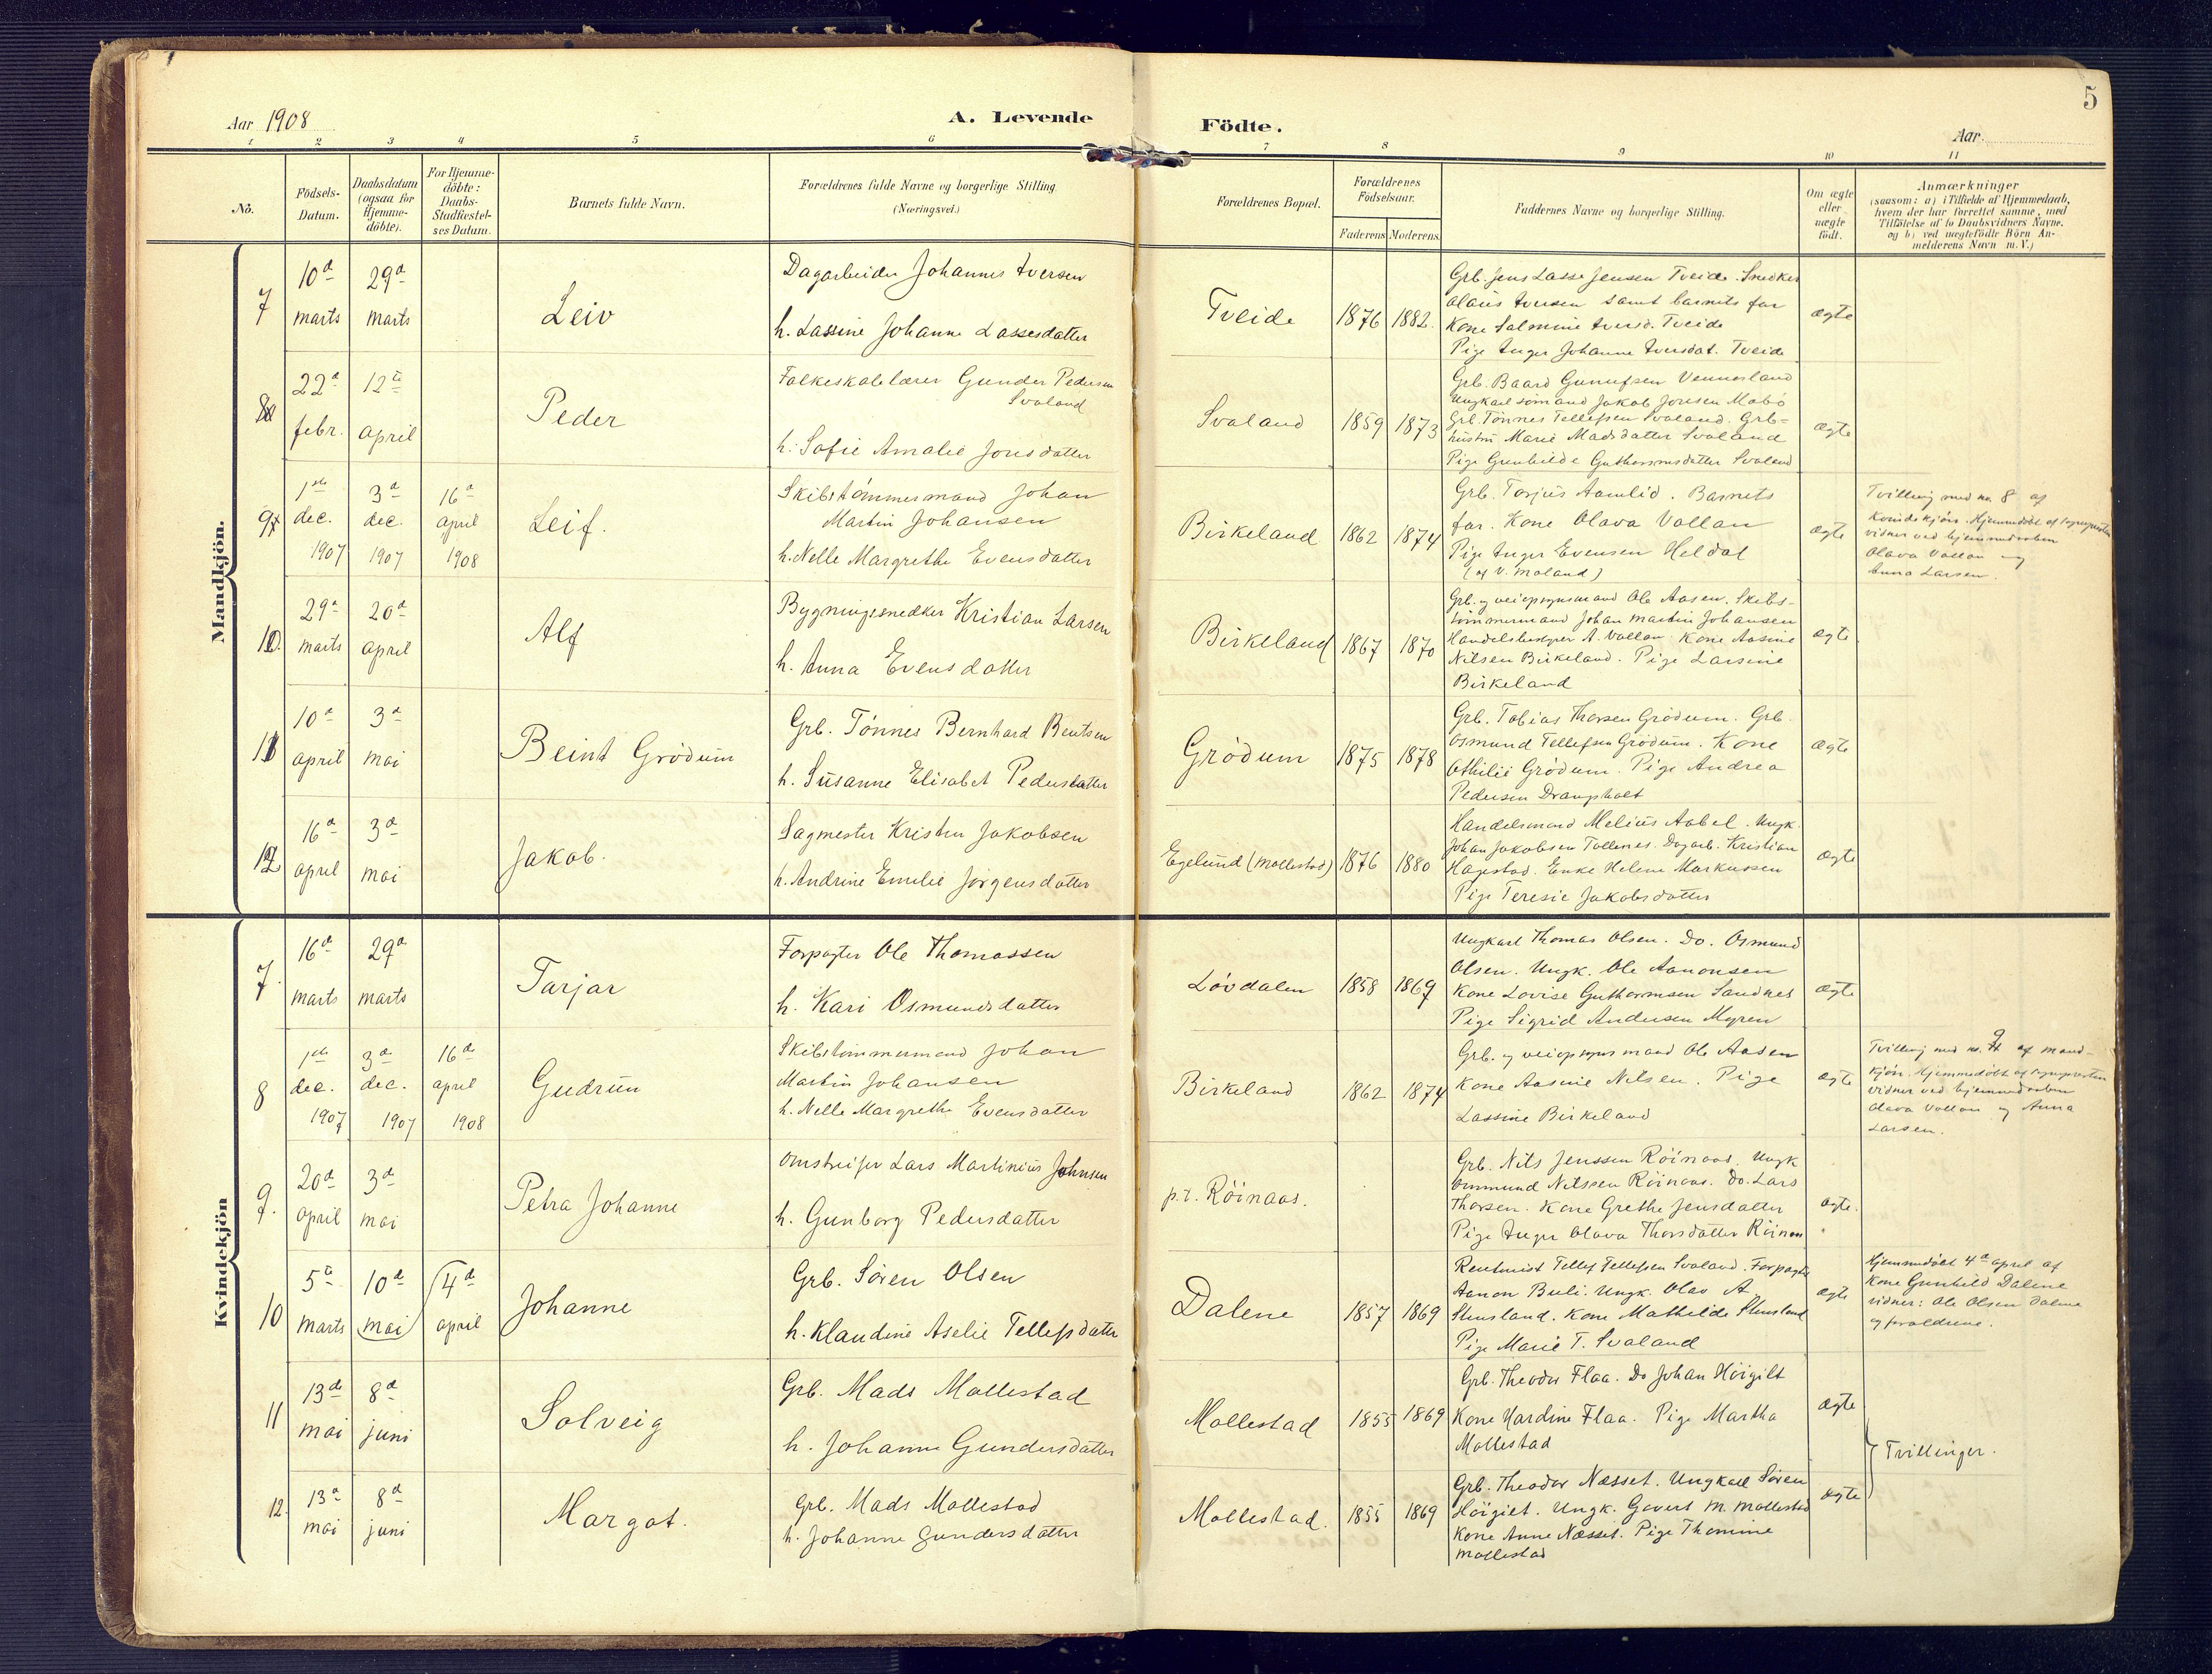 5
Aar 1908
A. Levende
Födte.
Aar
1 2 3 4 5 6 7 8 9 10 11
No.
Födsels-
Datum.
Daabsdatum
(ogsaa for
Hjemme-
döbte).
For Hjemme-
döbte:
Daabs-
Stadfæstel-
ses Datum.
Barnets fulde Navn.
Forældrenes fulde Navne og borgerlige Stilling
(Næringsvei.)
Forældrenes Bopæl.
Forældrenes
Födselsaar.
Faderens Moderens
Faddernes Navne og borgerlige Stilling.
Om ægte
eller
uægte
födt.
Anmærkninger
(saasom: a) i Tilfælde af Hjemmedaab,
hvem der har forrettet samme, med
Tilföielse af to Daabsvidners Navne.
og b) ved uægtefödte Börn An-
melderens Navn m.V.)
Mandkjön.
7
10d
marts
29d
marts
Leiv
Dagarbeider Johannes Iversen
h. Lassine Johanne Lassesdatter
Tveide
1876
1882
Grb. Jens Lasse Jensen Tveide. Snedker
Olaus Iversen samt barnets far
Kone Salmine Iversd. Tveide
Pige Inger Johanne Iversdat. Tveide
ægte
8
22d
febr.
12te
april
Peder
Folkeskolelærer Gunder Pedersen
Svaland
h. Sofie Amalie Jorisdatter
Svaland
1859
1873
Grb. Baard Gunufsen Vennesland
Ungkarl sömand Jakob Jorisen Mabö
Grb. Tönnes Tellefsen Svaland. Grb=
hustru Marie Madsdatter Svaland
Pige Gunhilde Guthormsdatter Svaland
ægte
9
1ste
dec.
1907
3d
dec.
1907
16d
april
1908
Leif.
Skibstömmermand Johan
Martin Johansen
h. Nelle Margrethe Evensdatter
Birkeland
1862
1874
Grb. Torjus Aamlid. Barnets
far. Kone Olava Vallan
Pige Inger Evensen Heldal
(af V. Moland)
ægte
Tvilling med no. 8 af
Kvindekjön. Hjemmedöbt af sognepresten
vidner ved hjemmedaaben
Olava Vallan og
Anna Larsen.
10.
29d
marts
20d
april
Alf
Bygningssnedker Kristian Larsen
h. Anna Evensdatter
Birkeland
1867
1870
Grb. og veiopsynsmand Ole Aasen. Skibs-
tömmermand Johan Martin Johansen
Handelsbestyrer A. Vallan. Kone Aasine
Nilsen Birkeland. Pige Larsine
Birkeland
ægte
11
10d
april
3d
mai
Beint Grödum
Grb. Tönnes Bernhard Bentsen
h. Susanne Elisabet Pedersdatter
Grödum
1875
1878
Grb. Tobias Thorsen Grödum. Grb.
Osmund Tellefsen Grödum. Kone
Othilie Grödum. Pige Andrea
Pedersen Drangsholt
ægte
12
16d
april
3d
mai
Jakob.
Sagmester Kristen Jakobsen
h. Andrine Emilie Jörgensdatter
Egelund (Mollestad)
1876
1880
Handelsmand Melius Aabel. Ungk.
Johan Jakobsen Tallenes. Dagarb. Kristian
Hagestad. Enke Helene Markussen
Pige Teresie Jakobsdatter
ægte
Kvindekjön
7.
16d
marts
29d
marts
Tarjar
Forpagter Ole Thomassen
h. Kari Osmundsdatter
Lövdalen
1858
1869
Ungkarl Thomas Olsen. Do. Osmund
Olsen. Ungk. Ole Aanonsen
Kone Lovise Guthormsen Sandnes
Pige Sigrid Andersen Myren
ægte
8
1ste
dec.
1907
3d
dec.
1907
16d
april
1908
Gudrun
Skibstömmermand Johan
Martin Johansen
h. Nelle Margrethe Evensdatter
Birkeland
1862
1874
Grb. og veiopsynsmand Ole Aasen
Kone Aasine Nilsen. Pige
Lassine Birkeland
ægte
Tvilling med no. 9 af mand-
kjön. Hjemmedöbt af sognepresten
vidner ved hjemmedaaben
Olava Vallan og Anna
Larsen.
9.
20d
april
3d
mai
Petra Johanne
Omstreifer Lars Martinius Johnsen
h. Gunborg Pedersdatter
p.t. Röinaas.
Grb. Nils Jenssen Röinaas. Ungk
Ommund Nilssen Röinaas. Do. Lars
Thorsen. Kone Grethe Jensdatter
Pige Inger Olava Thorsdatter Röinaas
ægte.
10
5te
marts
10d
mai
4d
april
Johanne
Grb. Sören Olsen
h. Klaudine Aselie Tellefsdatter
Dalene
1857
1869
Rentenist Tellef Tellefsen Svaland. Forpagter
Aanon Buli. Ungk. Olav A.
Stensland. Kone Mathilde Stensland
Pige Marie T. Svaland
ægte
Hjemmedöbt 4d april af
Kone Gunhild Dalene
vidner: Ole Olsen Dalene
og forældrene.
11
13de
mai
8d
juni
Solveig
Grb. Mads Mollestad
h. Johanne Gundersdatter
Mollestad
1855
1869
Grb. Theodor Flaa. Do Johan Höigilt
Kone Hardine Flaa. Pige Martha
Mollestad
ægte
Tvillinger.
12.
13d
mai
8d
juni
Margot.
Grb. Mads Mollestad
h. Johanne Gundersdatter
Mollestad.
1855
1869
Grb. Theodor Næsset. Ungkarl Sören
Höigilt. Ungk. Gavert M. Mollestad
Kone Anne Næsset. Pige Thomine
Mollestad
ægte